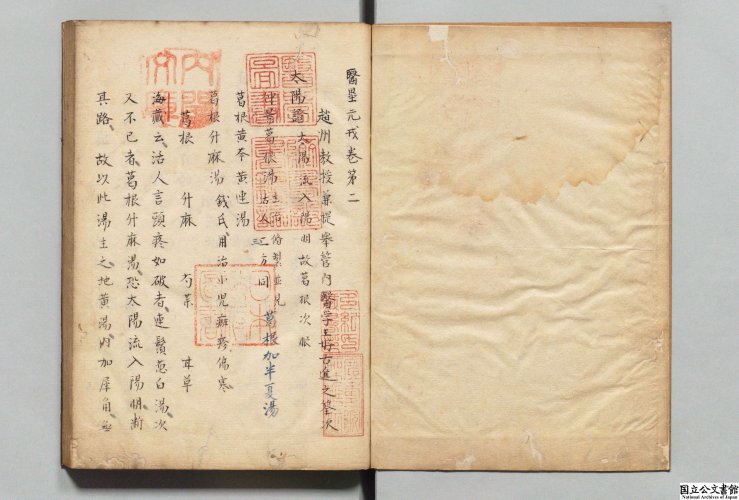 醫壘元戎卷第二
趙州教授兼提舉管內醫學王好古進之筌次
太陽證 太陽流入陽明故葛根次服
仲景葛根湯
三方同 葛根加半夏湯
葛根黃芩黃連湯
葛根升麻湯 錢氏用治小児癍疹傷寒
葛根 升麻 芍藥 甘草
海藏云活人言頭疼如破者連鬚葱白湯次
又不已者葛根升麻湯恐太陽流入陽明断
其路 故以此湯主之地黃湯內加犀角
國立公文書館
National Archives of Japan